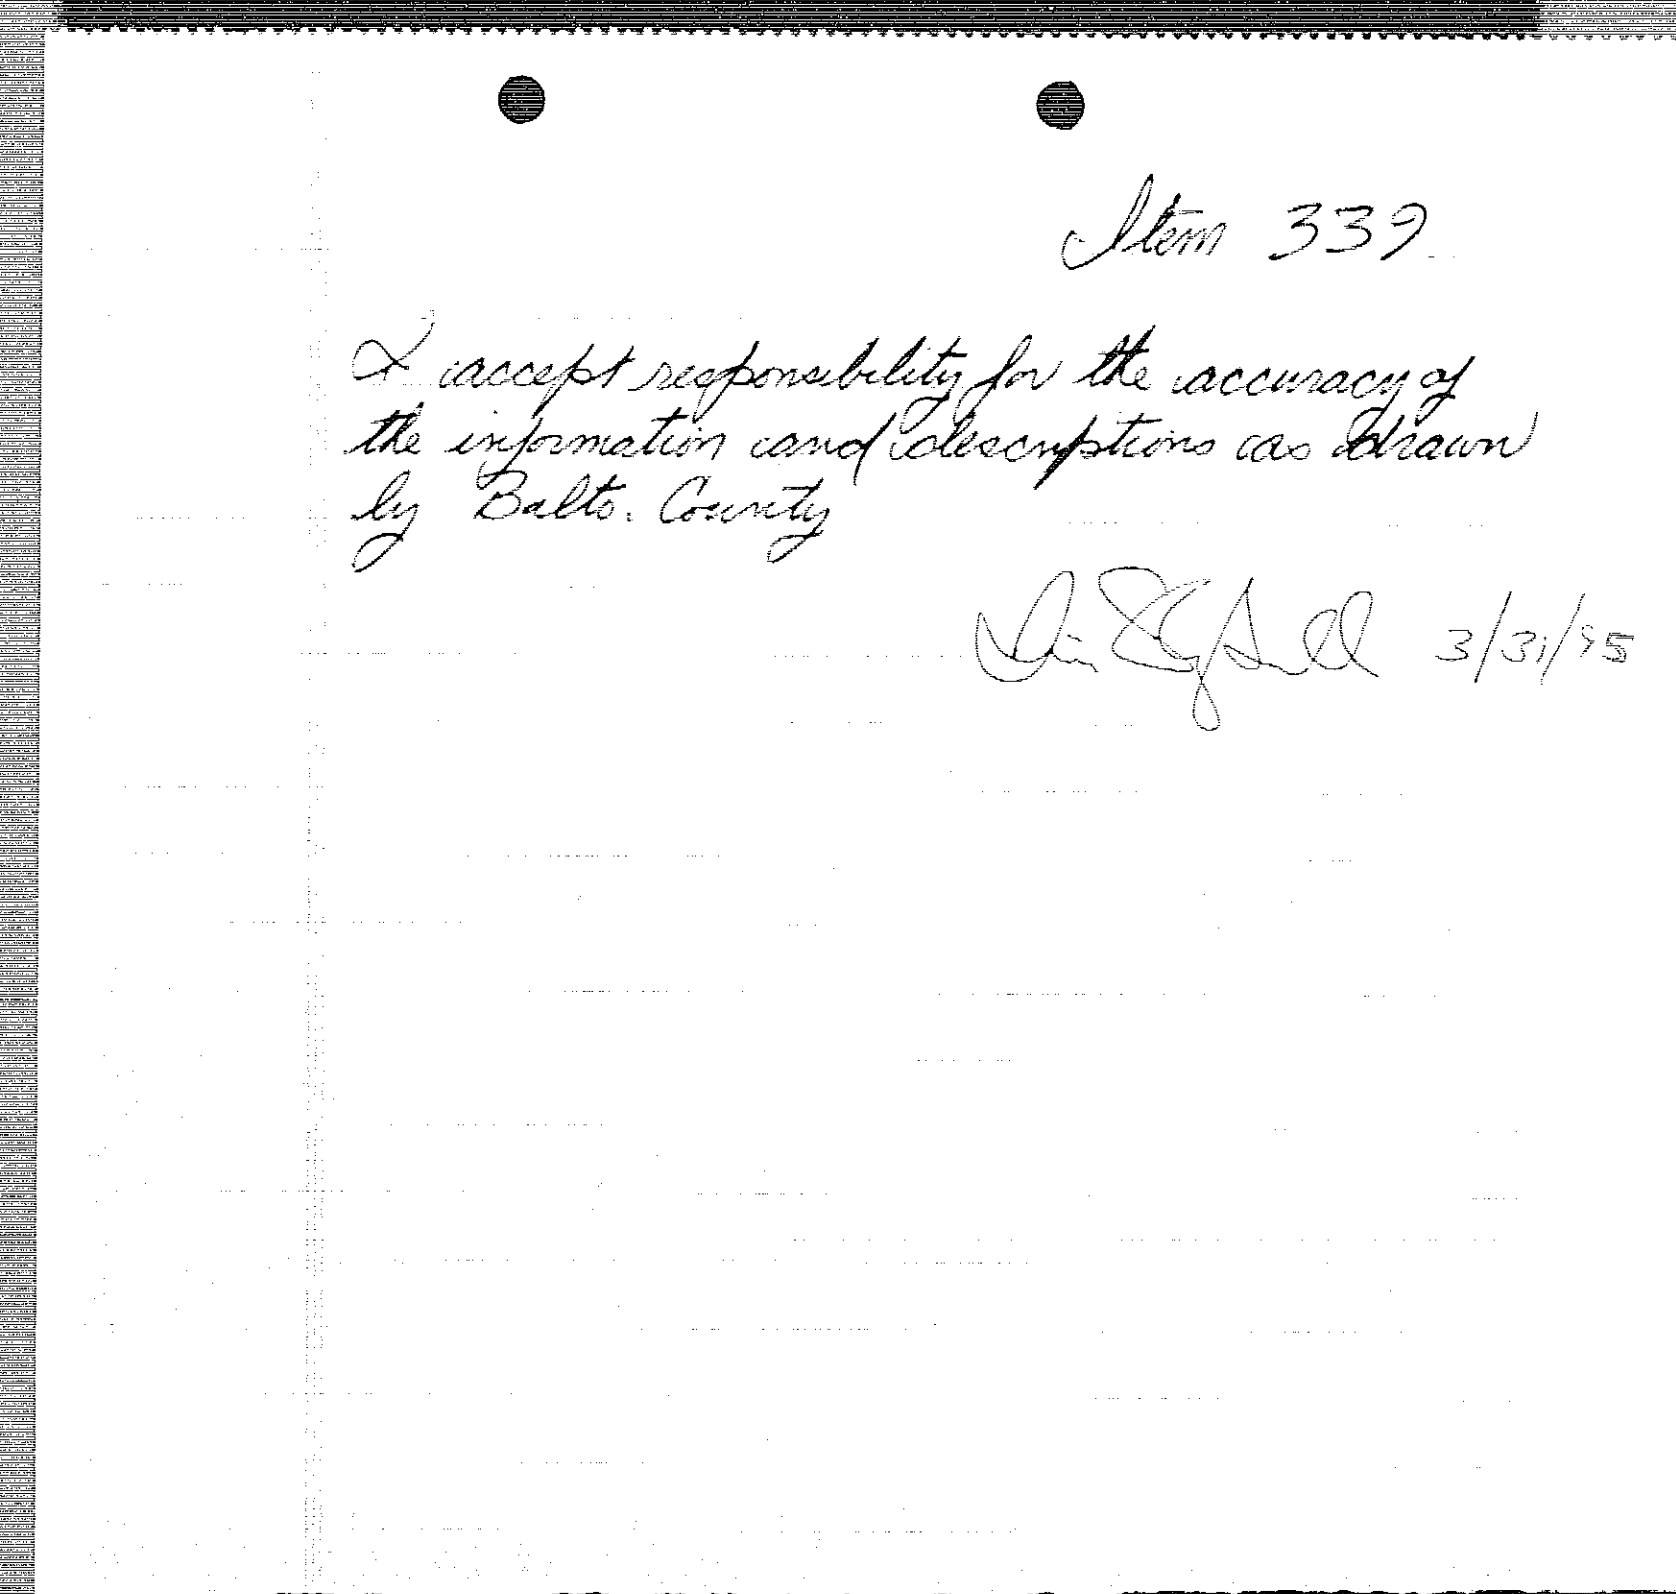 Item 339
I accept responsibility for the accuracy of
the information and descriptions as drawn
by Balto. County
3/31/95